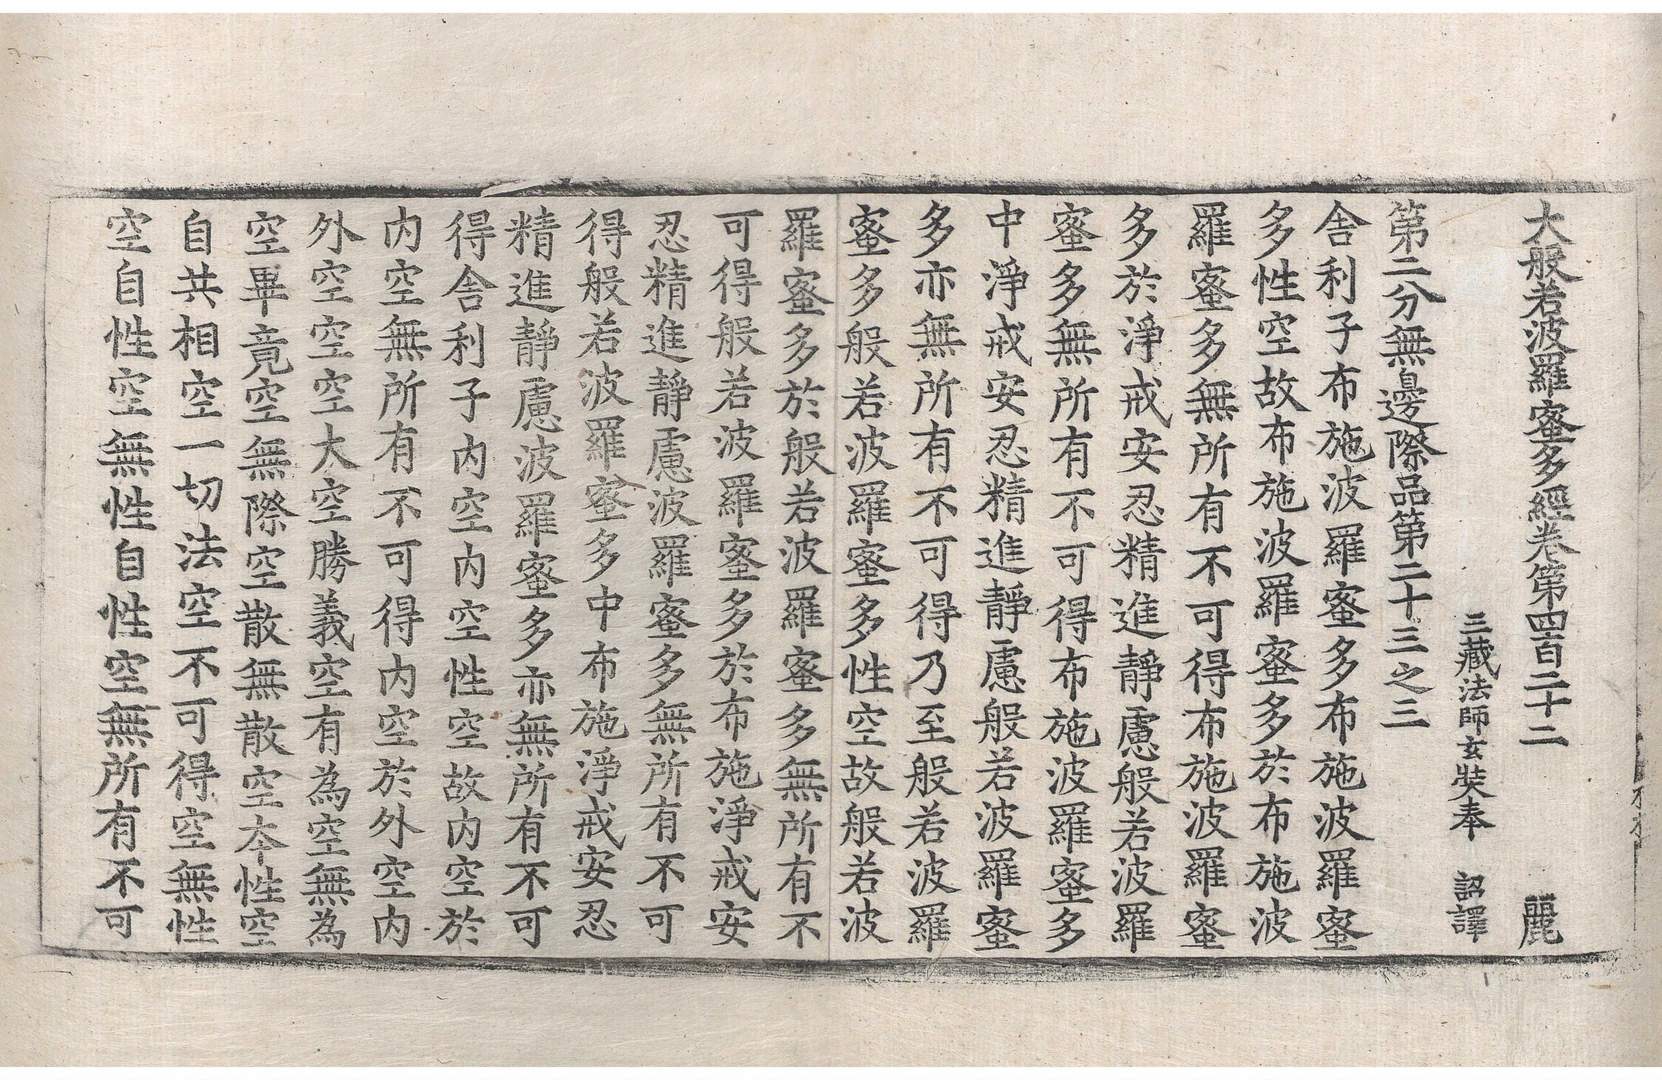 大般若波羅蜜多經卷第四百二十二 麗
三藏法師玄奘奉 詔譯
第二分無邊際品第二十三之三
舍利子布施波羅蜜多布施波羅蜜
多性空故布施波羅蜜多於布施波
羅蜜多無所有不可得布施波羅蜜
多於淨戒安忍精進靜慮般若波羅
蜜多無所有不可得布施波羅蜜多
中淨戒安忍精進靜慮般若波羅蜜
多亦無所有不可得乃至般若波羅
蜜多般若波羅蜜多性空故般若波
羅蜜多於般若波羅蜜多無所有不
可得般若波羅蜜多於布施淨戒安
忍精進靜慮波羅蜜多無所有不可
得般若波羅蜜多中布施淨戒安忍
精進靜慮波羅蜜多亦無所有不可
得舍利子內空內空性空故內空於
內空無所有不可得內空於外空內
外空空空大空勝義空有為空無為
空畢竟空無際空散無散空本性空
自共相空一切法空不可得空無性
空自性空無性自性空無所有不可